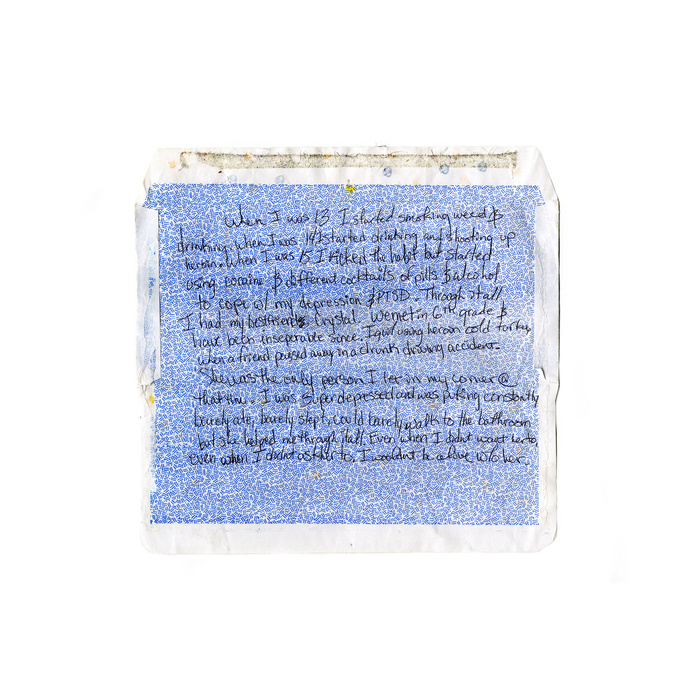 When I was 13 I started smoking weed &
drinking. When I was 14 I started drinking and shooting up
heroin. When I was 15 I kicked the habit but started
using cocaine & different cocktails of pills & alcohol
to cope w/ my depression & PTSD. Through it all
I had my bestfriend Crystal. We met in 6th grade &
have been inseperable since. I quit using heroin cold turkey
when a friend passed away in a drunk driving accident.
She was the only person I let in my corner @
that time. I was super depressed and was puking constantly
barely ate, barely slept, could barely walk to the bathroom
but she helped me through it all. Even when I didnt want her to,
even when I didnt ask her to, I wouldnt be alive w/o her.